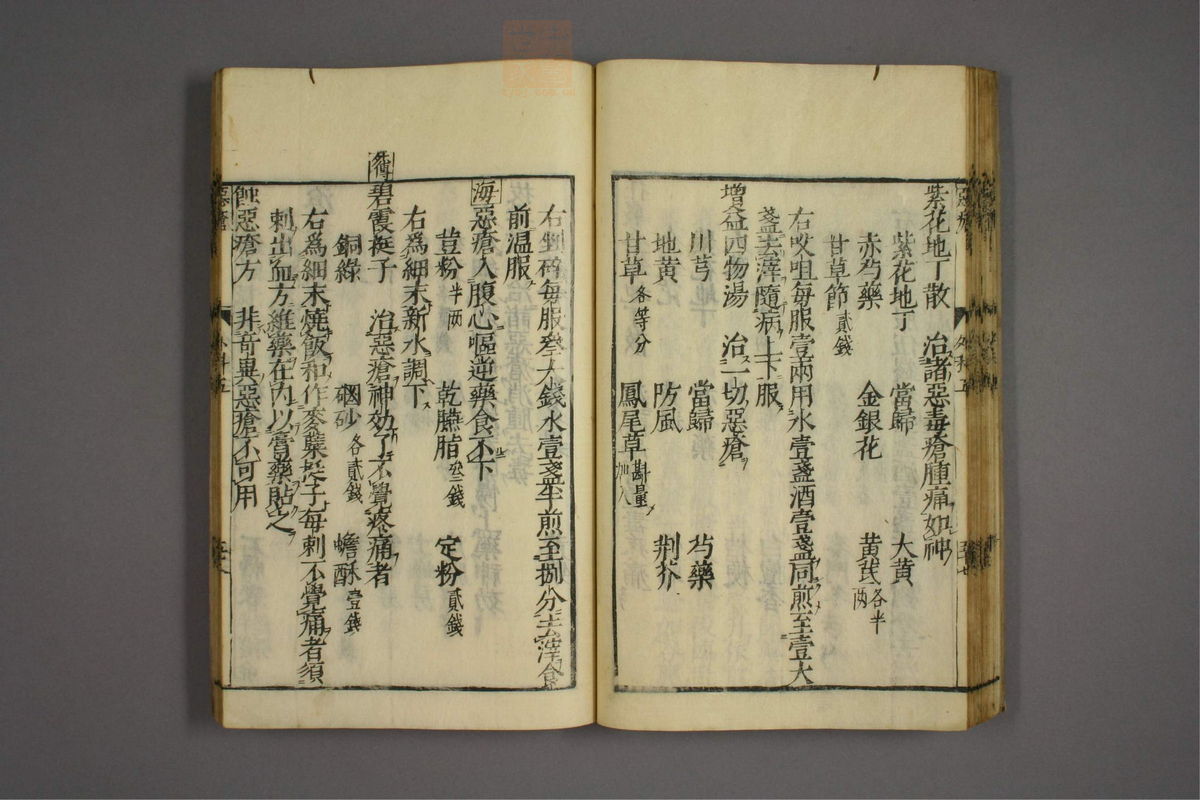 紫花地丁散 治諸惡毒瘡腫痛如神
紫花地丁 當歸 大黃
赤芍藥 金銀花 黃芪各半兩
甘草節貳錢
右㕮咀每服壹兩用水壹盞酒壹盞同煎至壹大
盞去滓隨病上下服
增益四物湯 治一切惡瘡
川芎 當歸 芍藥
地黃 防風 荆芥
甘草各等分 鳳尾草斟量加入
右剉碎每服叄大錢水壹盞半煎至捌分去滓食
前温服
海 惡瘡入腹心嘔逆藥食不下
荳粉半兩 乾臙脂叄錢 定粉貳錢
右爲細末新水調下
碧霞挺子 治惡瘡神効了不覺疼痛者
銅綠 硇砂各貳錢 蟾酥壹錢
右爲細末燒飯和作麥蘖挺子每刺不覺痛者須
刺出血方維藥在内以膏藥貼之
蝕惡瘡方 非奇異惡瘡不可用